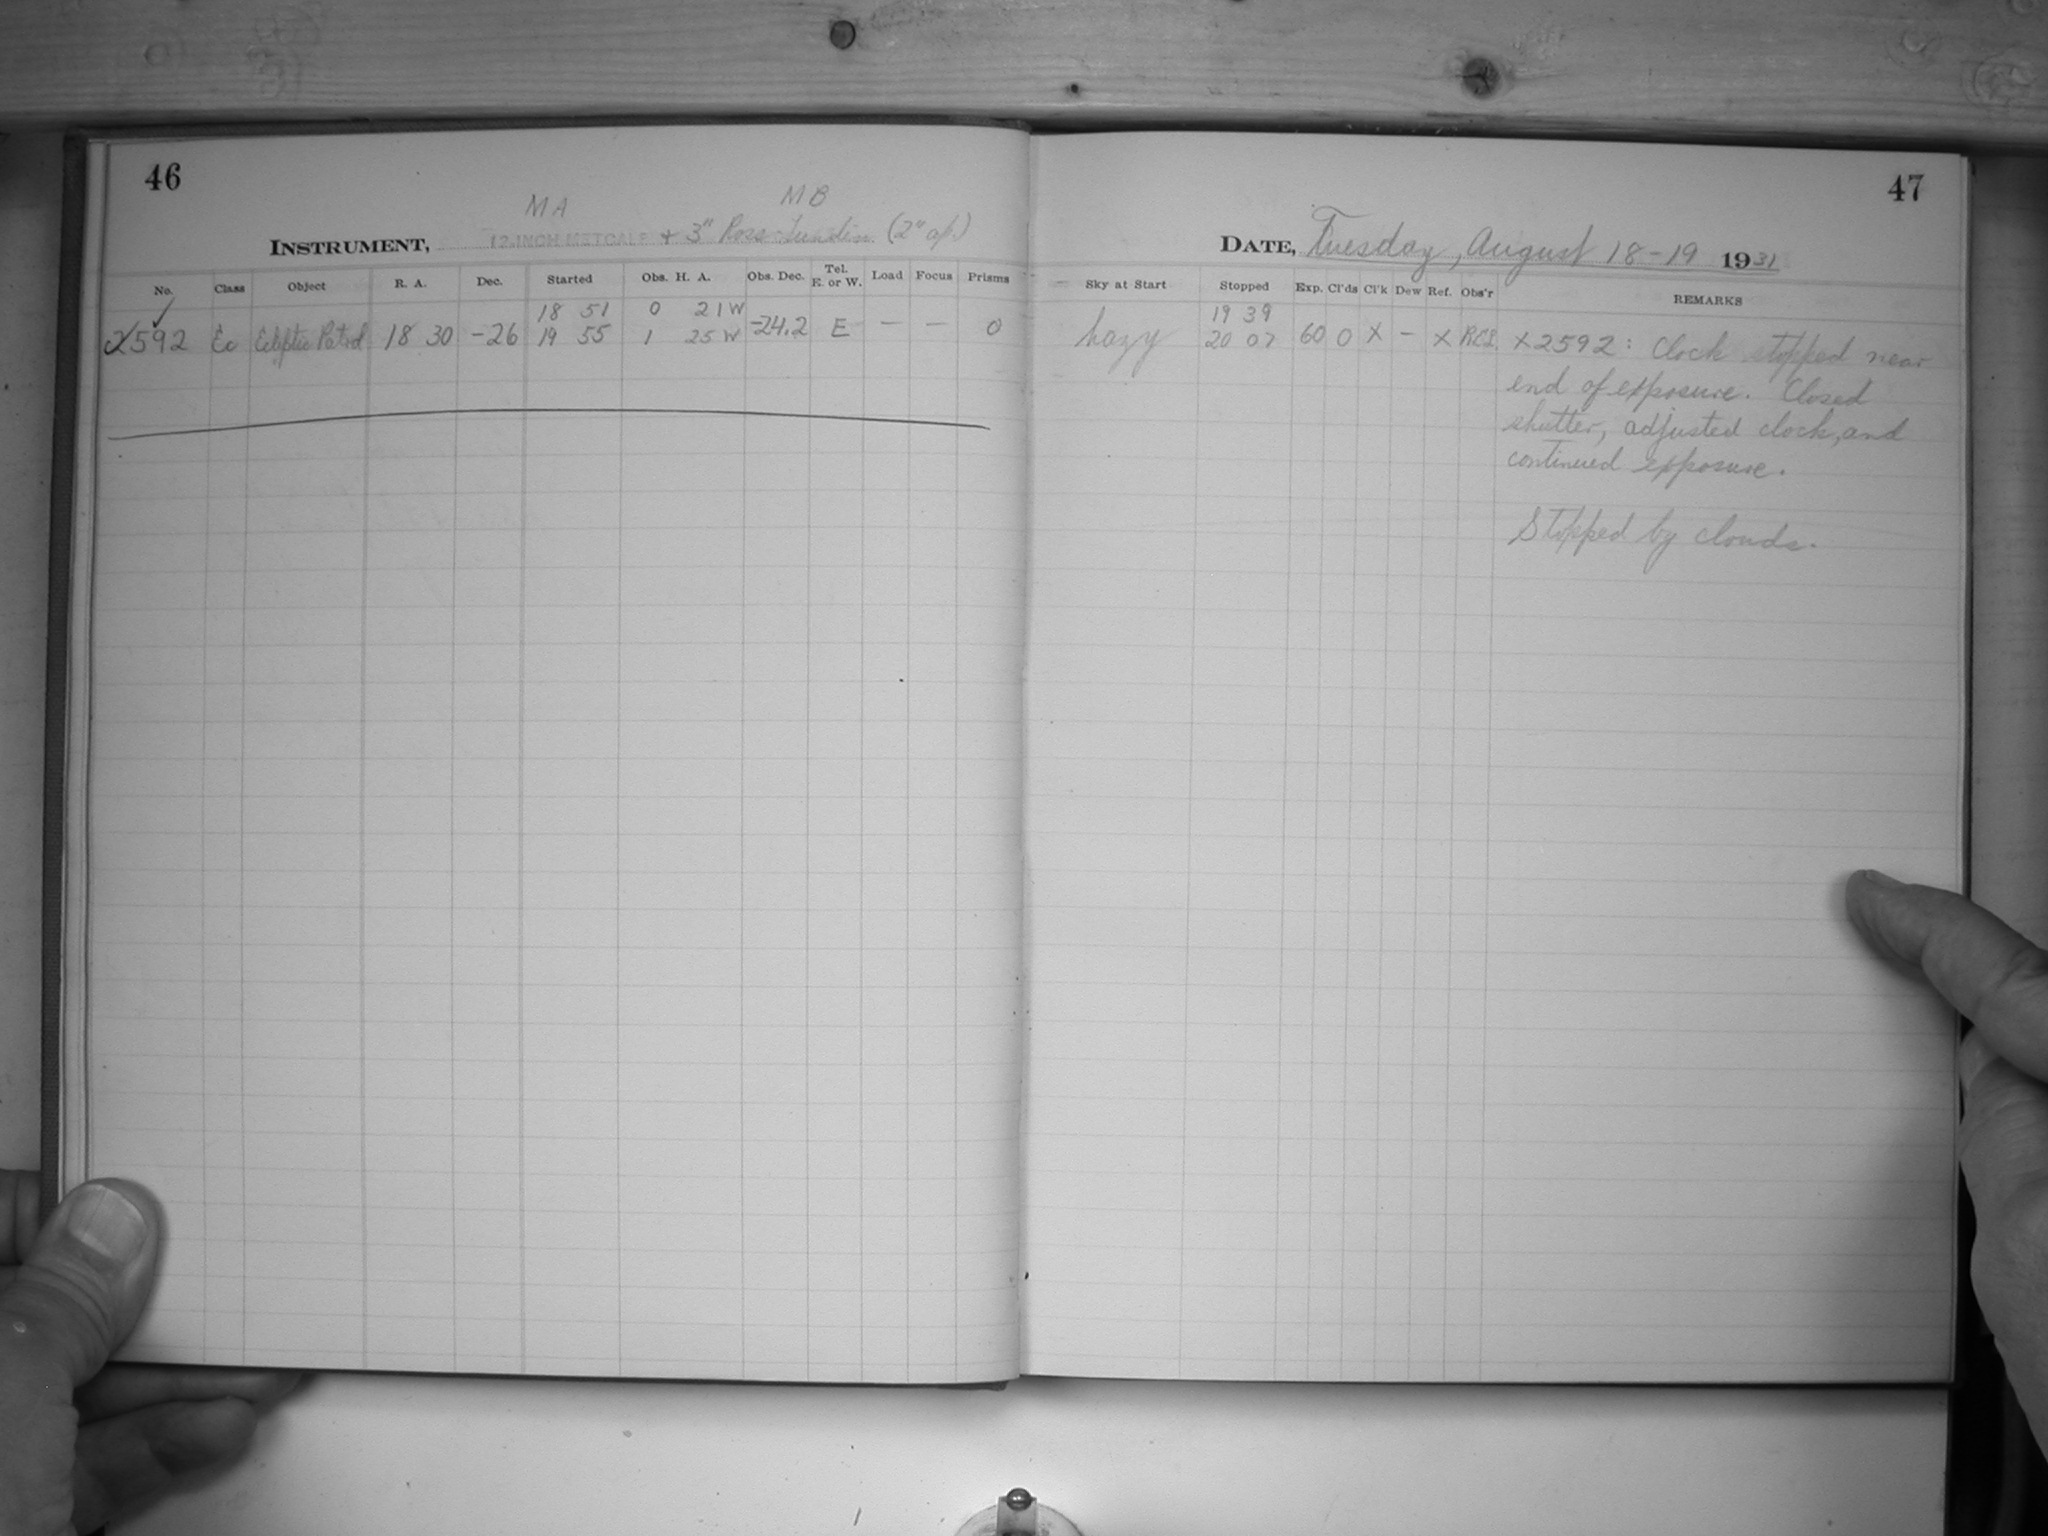 46
MA MB
INSTRUMENT, 12-INCH METCALF + 3" Ross-Lundin (2" ap.)
No. Class Object R. A. Dec. Started Obs. H. A. Obs. Dec. Tel. E. or W. Load Focus Prisms
18 51 0 21W
2592 Ec Ecliptic Patrol 18 30 -26 19 55 1 25 W -24.2 E — — 0
47
DATE, Tuesday, August 18-19 1931
Sky at Start Stopped Exp. Cl'ds Cl'k Dew Ref. Obs'r REMARKS
19 39
hazy 20 07 60 0 X - X X2592: Clock stopped near
end of exposure. Closed
shutter, adjusted clock, and
continued exposure.
Stopped by clouds.